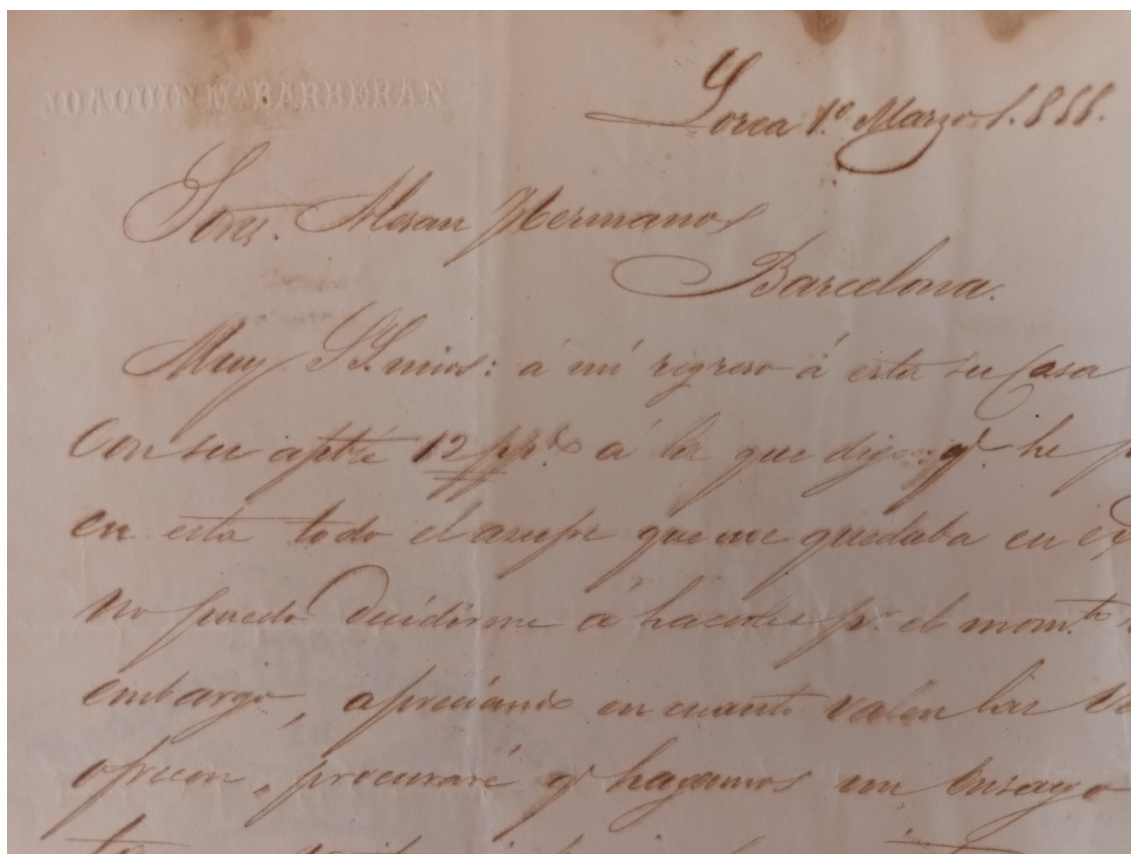 JOAQUIN Mª BARBERAN
Lorca 1º Marzo 1.888.
Sores. Hermanos
Barcelona.
Muy SS. mios: á mi regreso á esta su casa
Con su 12 pp.do á la que dijo q.e he
en esta todo el que me quedaba en
no puedo decidirme á hacerles p.r el mom.to
embargo, apreciando en cuanto valen las
ofrecen, procuraré q.e hagamos un ensayo